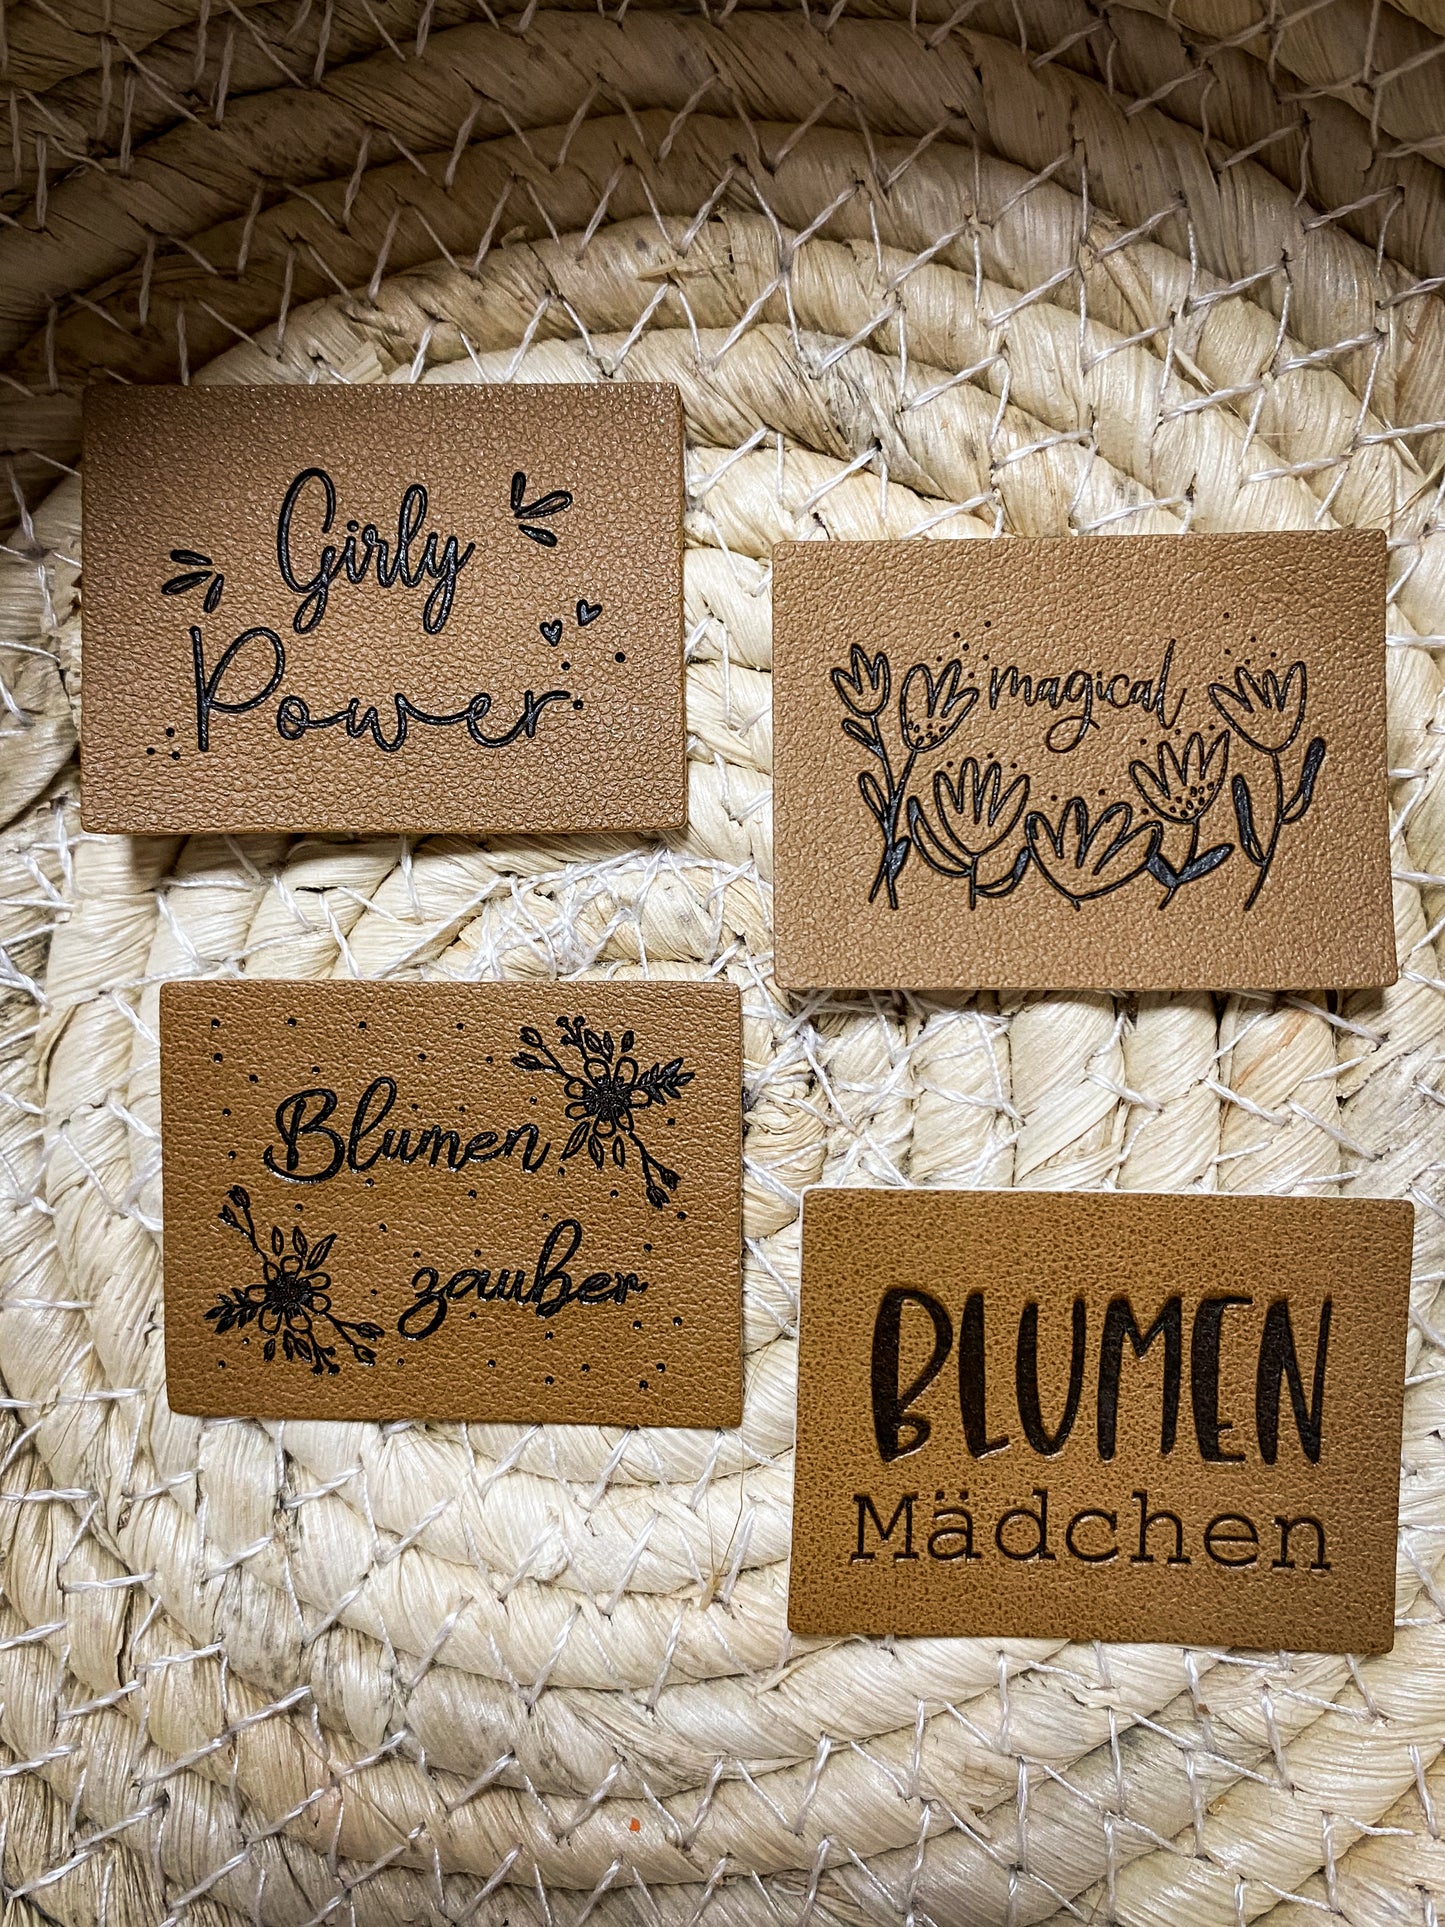 Girly
Power
magical
Blumen
zauber
BLUMEN
Mädchen